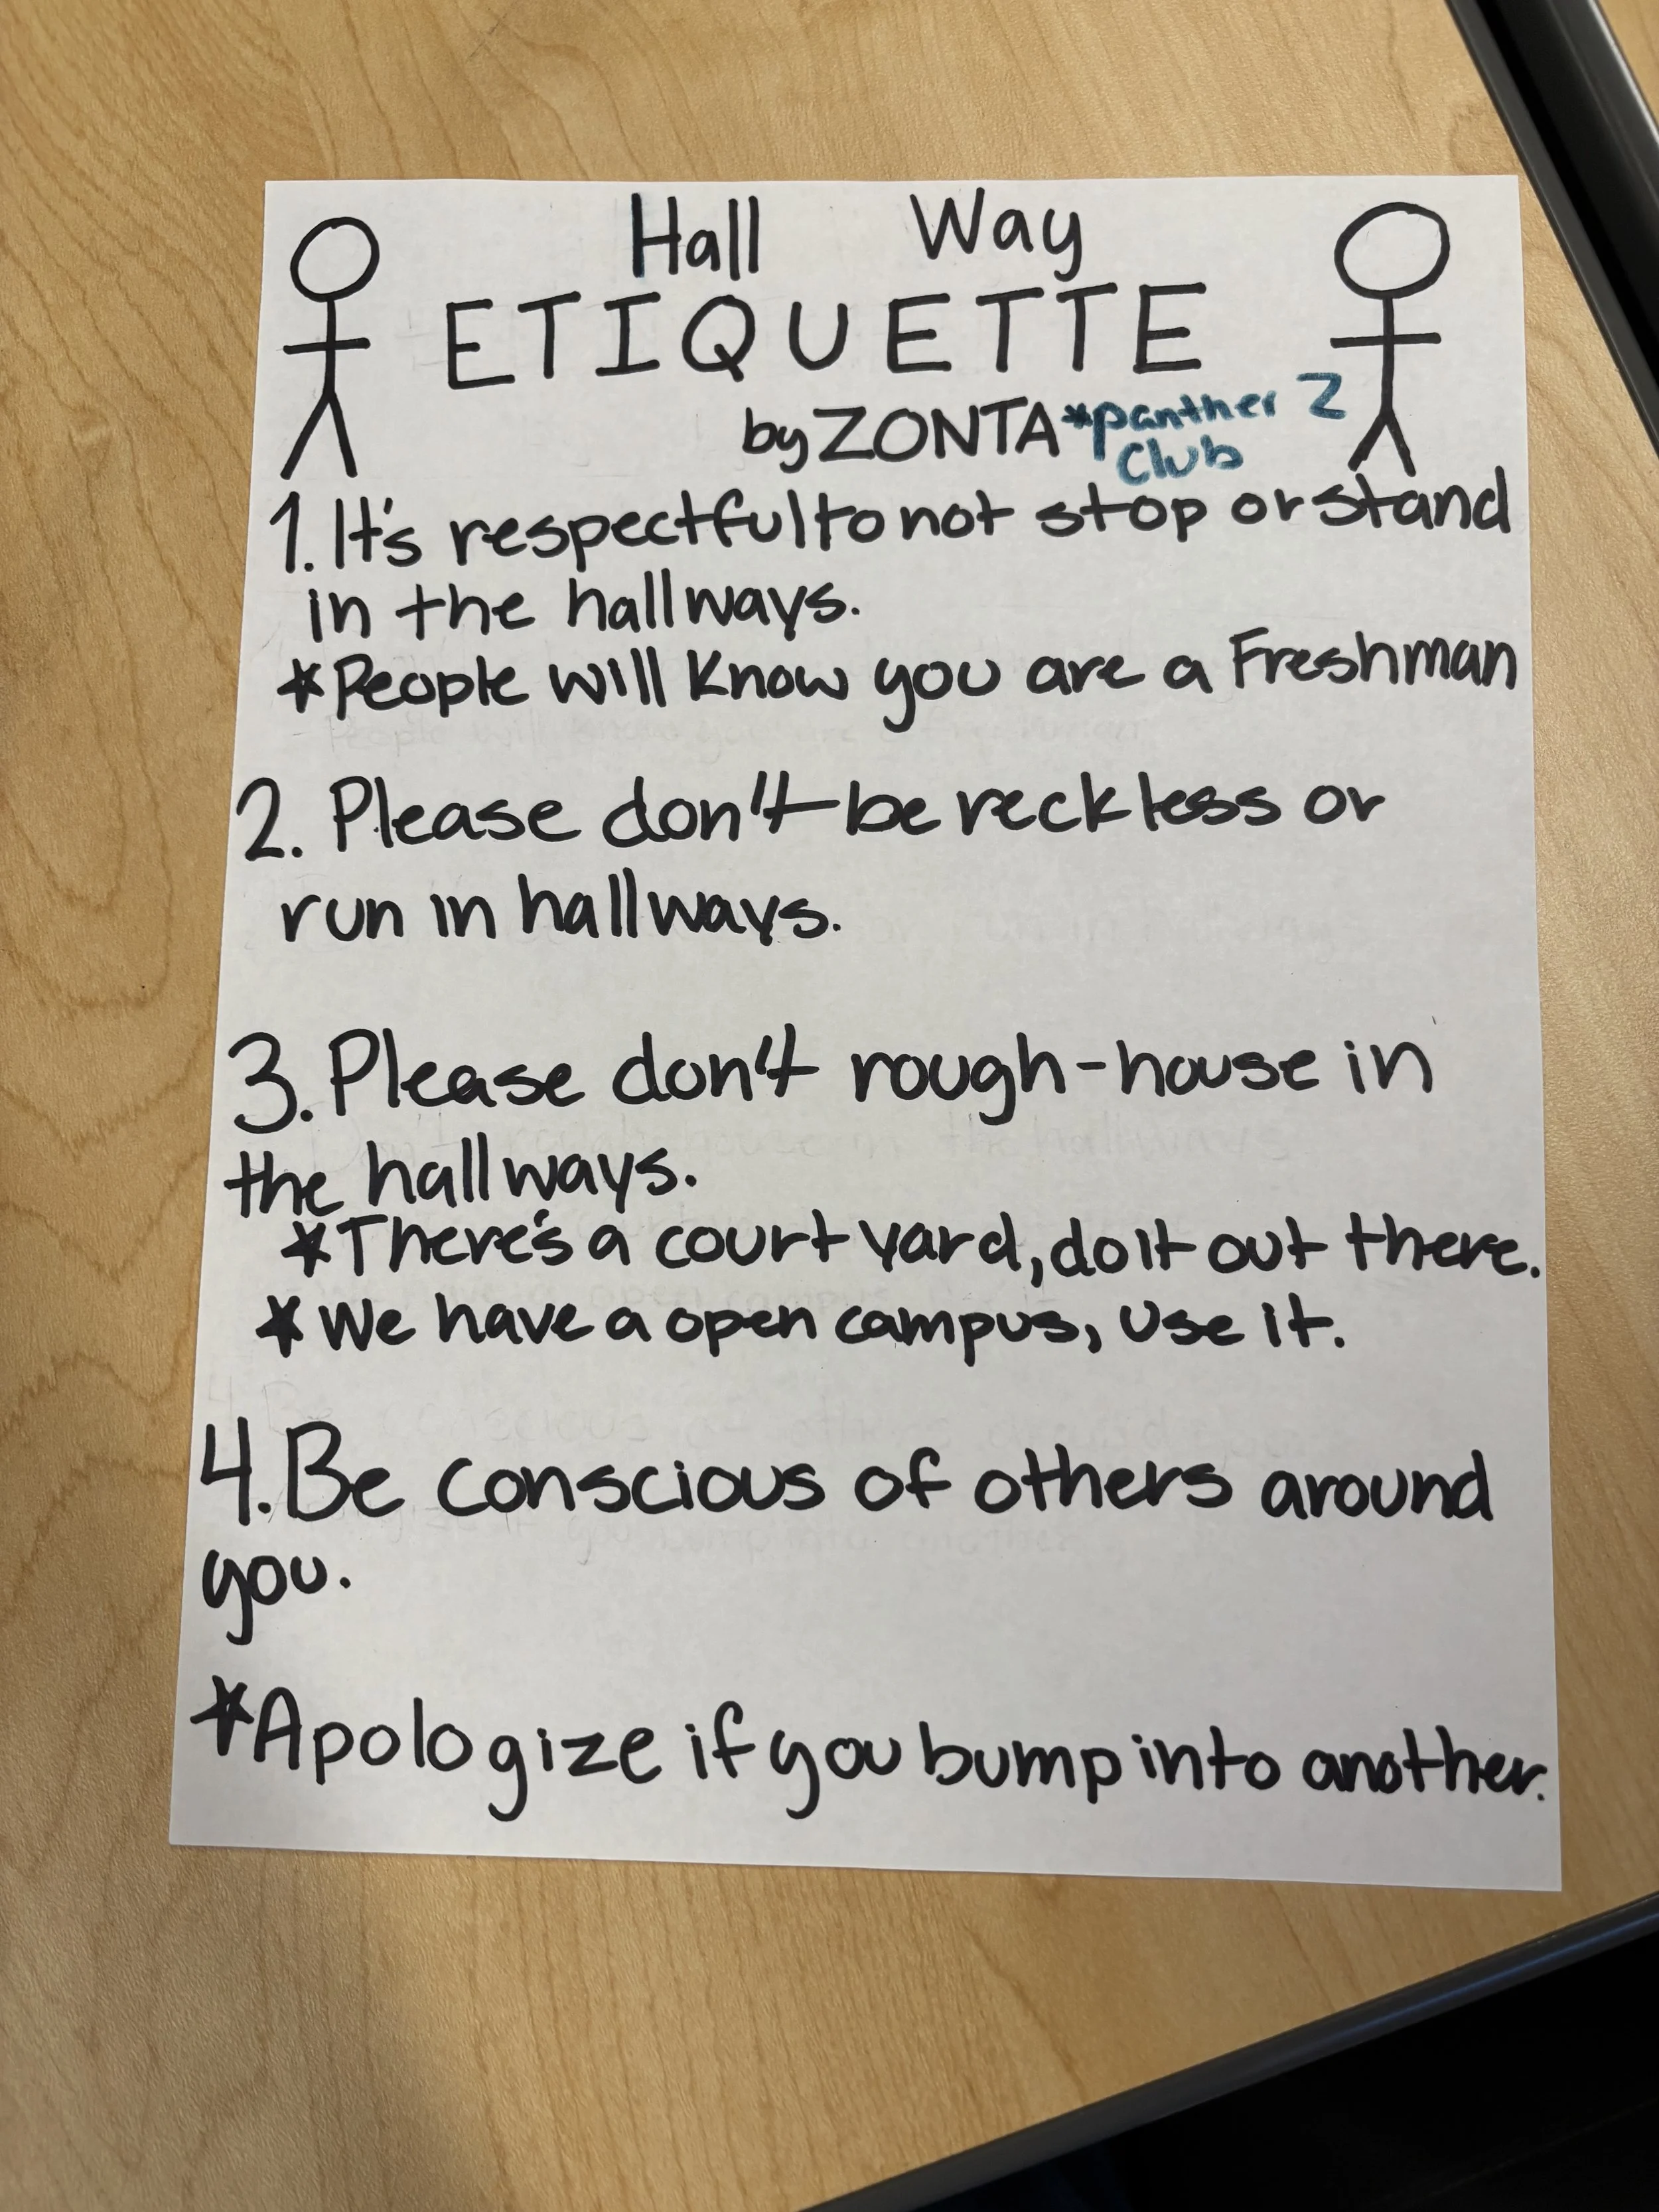 Hall Way
ETIQUETTE
by ZONTA *panther Z
Club
1. It's respectful to not stop or stand
in the hallways.
*People will know you are a Freshman
2. Please don't be reckless or
run in hallways.
3. Please don't rough-house in
the hallways.
*There's a courtyard, do it out there.
*We have a open campus, use it.
4. Be conscious of others around
you.
*Apologize if you bump into another.